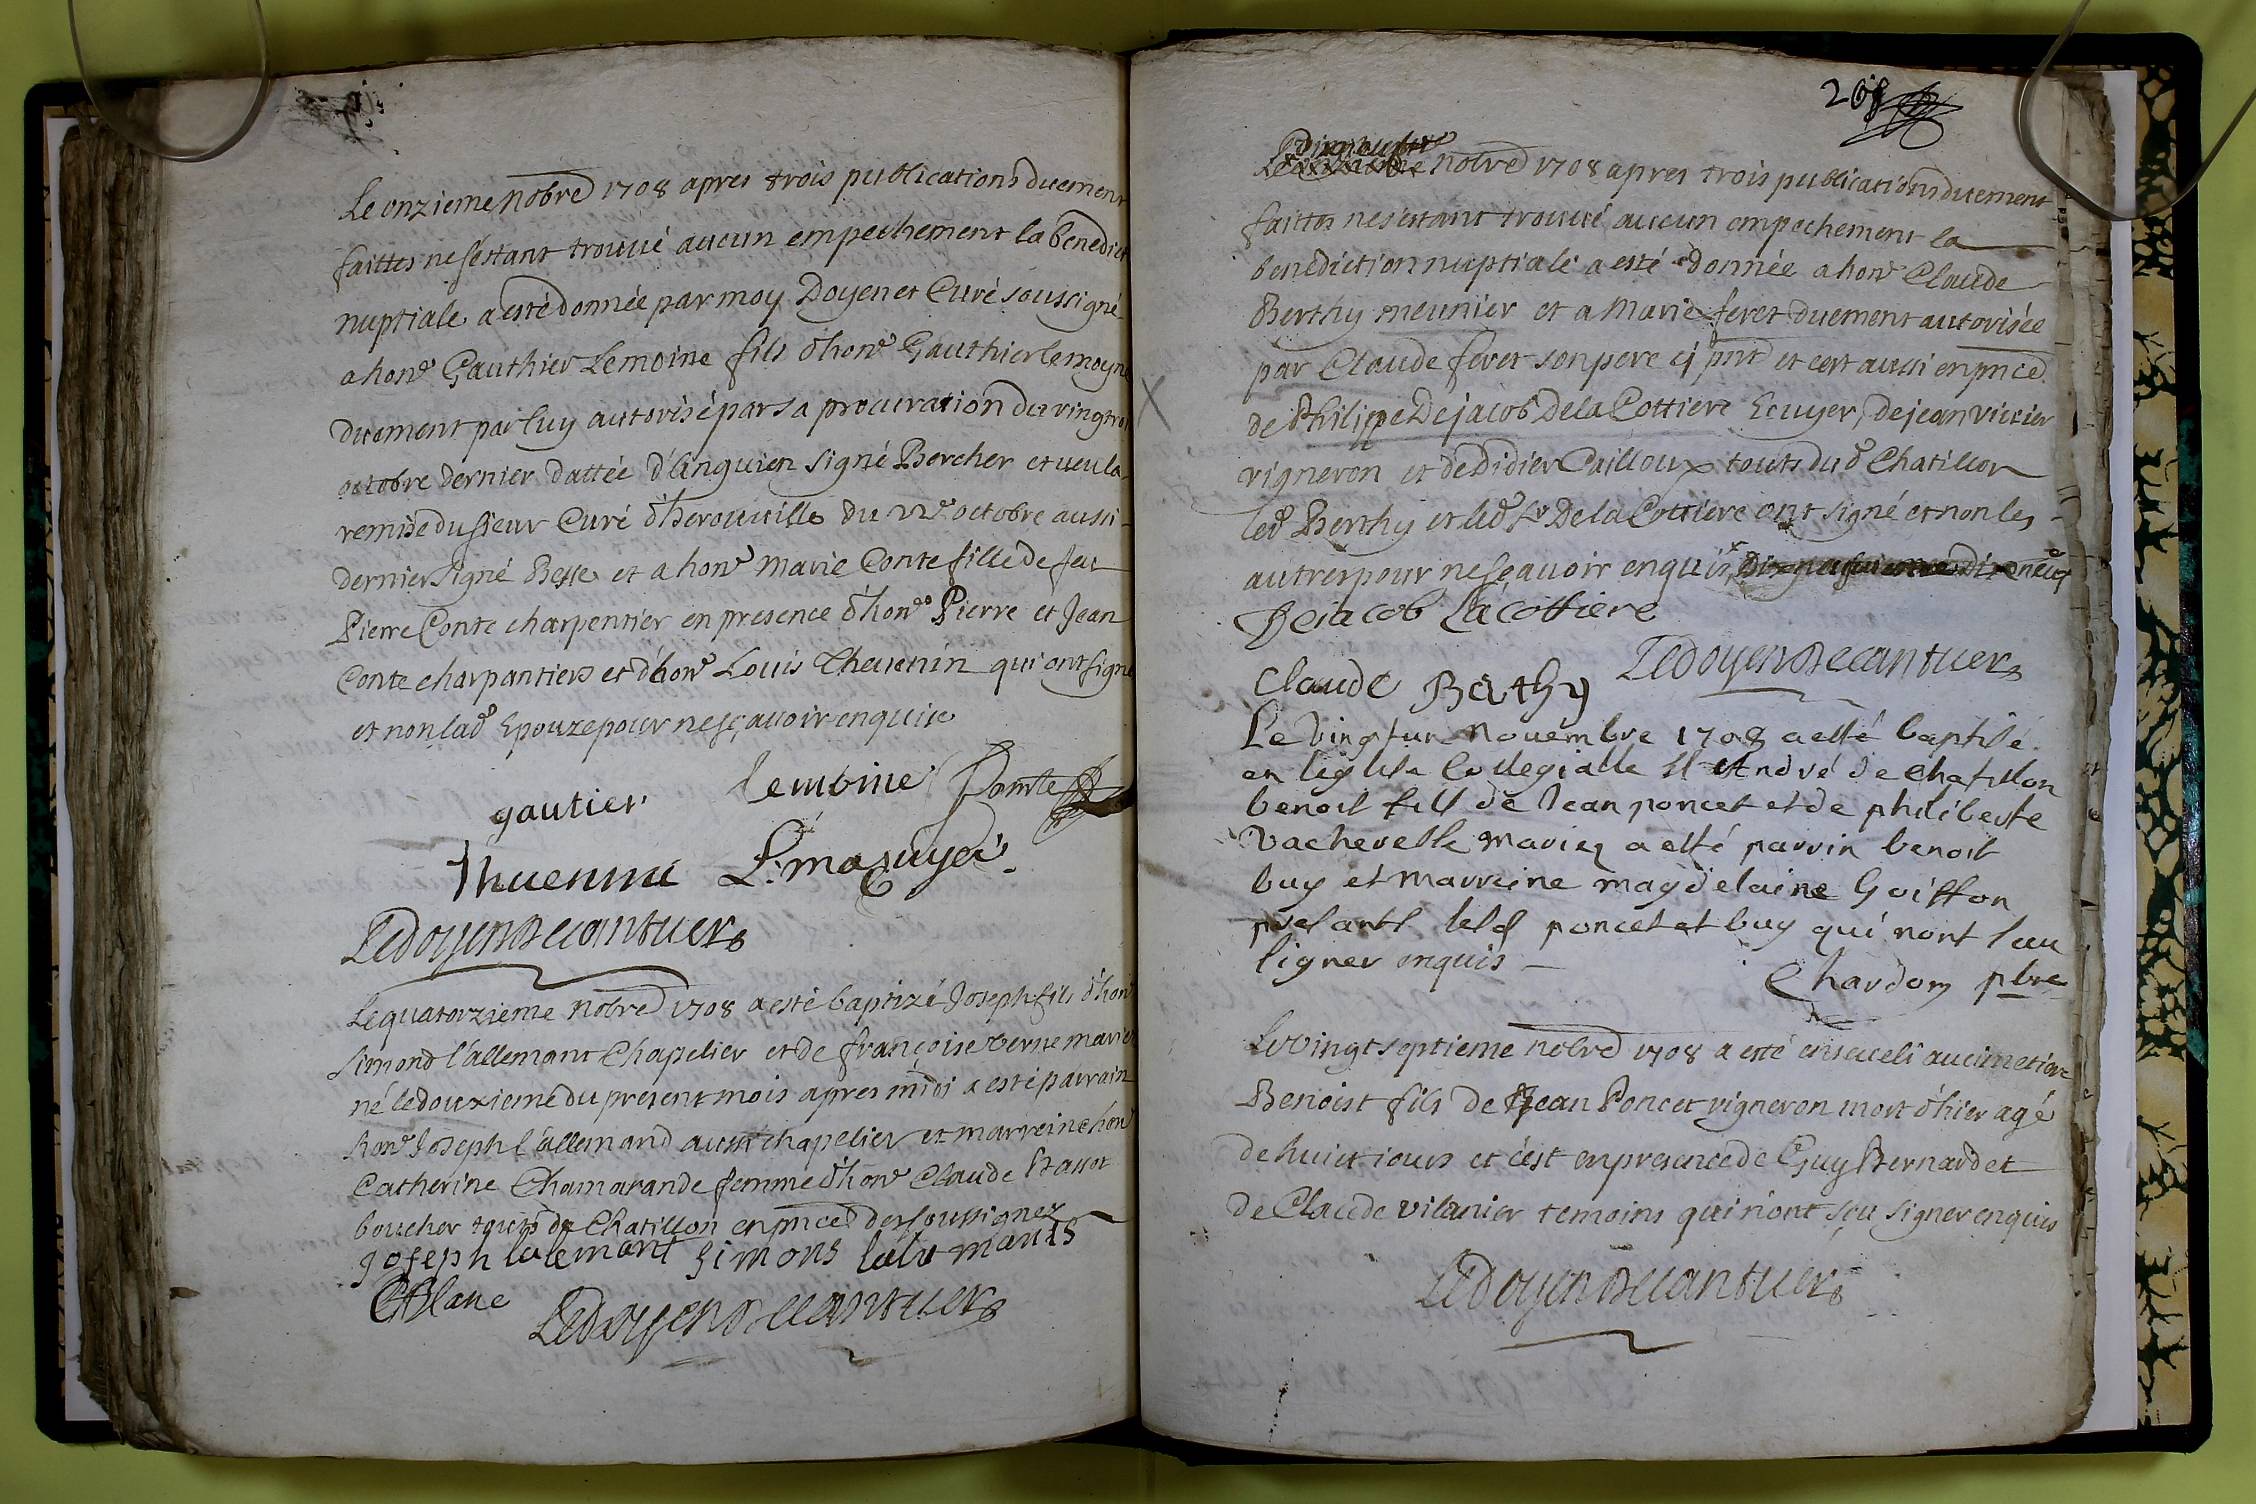 Le onzieme nobre 1708 apres trois publications duement
faittes ne s'estant trouvé aucun empechement la benedict
nuptiale a esté donnée par moy Doyen et Curé soussigné
a hon.e Gauthier Lemoine fils d'hon.e Gauthier lemoyne
duement par luy autorisé par sa procuration du vingtroi
octobre dernier dattée d'anguien signé Bercher et veu la
remise du sieur Curé d'herouville du 22e octobre aussi
dernier signé Besse et a hon.e Marie Conte fille de feu
Pierre Conte charpentier en presence d'hon.es Pierre et Jean
Conte charpantiers et d'hon.e Louis Thevenin qui ont signé
et non lad.e Epouze pour ne sçavoir enquise
gautier lemoine Comte
Thuenin L. mazuyer
Ledoyen Decantuers
Le quatorzieme nobre 1708 a esté baptizé Joseph fils d'hon.e
Simond l'allemant Chapelier et de françoise verne mariez
né le douxieme du present mois apres midi a esté parrain
hon.e Joseph l'allemand aussi chapelier et marreine hon.e
Catherine Chamarande femme d'hon.e Claude Bassot
boucher touts de Chatillon en pnce des soussignez
Joseph lalemant simons lalemants
Blanc Ledoyen Decantuers
208
Dixneufie
Le nobre 1708 apres trois publications duement
faittes ne s'estant trouvé aucun empechement la
benediction nuptiale a esté donnée a hon.e Claude
Berthy meunier et a Marie feret duement autorisée
par Claude feret son pere cy pnt et cest aussi en pnce
de Philippe Dejacob Dela Cottiere Ecuyer, de jean
vigneron et de Didier Cailloux touts dud.e Chatillon
led.e Berthy et led.e Sr Dela Cottiere ont signé et non les
autres pour ne sçavoir enquis
Dejacob La cottiere
Claude Berthy Ledoyen Decantuers
Le vingtun Novembre 1708 a esté baptisé
en leglise Collegialle St André de Chatillon
benoit fils de Jean poncet et de philiberte
Vacherelle mariez a esté parrin benoit
buy et marreine magdelaine Goiffon
presants lesd poncet et buy qui n'ont sceu
signer enquis
Chardon pbre
Le vingt septieme nobre 1708 a esté enseveli au cimetiere
Benoist fils de Jean Poncet vigneron mort d'hier agé
de huict jours et c'est en presence de Guy Bernard et
de Claude vilanier temoins qui n'ont sçu signer enquis
Ledoyen Decantuers